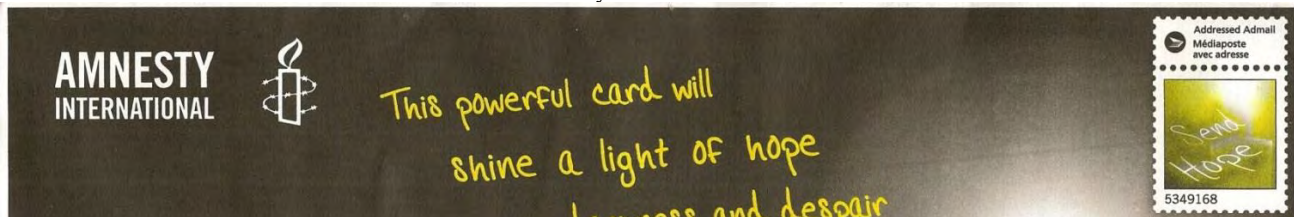 AMNESTY
INTERNATIONAL
This powerful card will
shine a light of hope
and despair
Addressed Admail
Médiaposte
avec adresse
Send
Hope
5349168